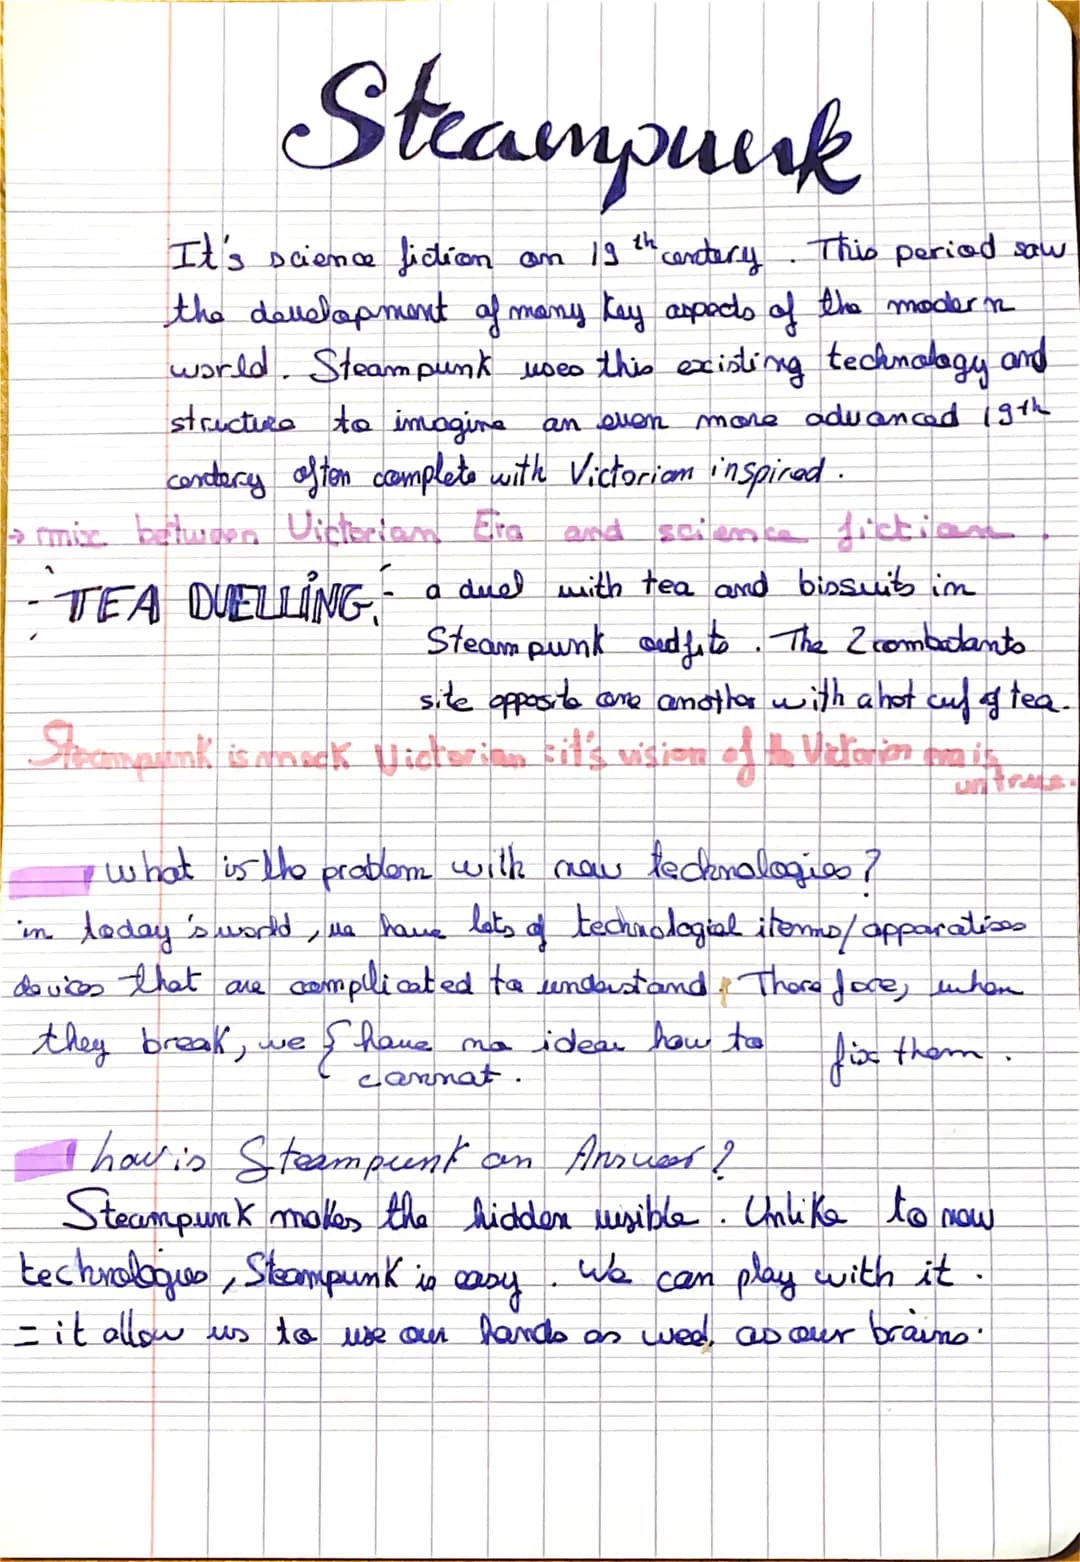 Steampunk
It's science fiction on 19th century. This period saw
the development of many key aspects of the modern
world. Steampunk uses this existing technology and
structure to imagine an even more advanced 19th
century often complete with Victorian inspired.
→ mix between Victorian Era and science fiction.
- TEA DUELLING: - a duel with tea and bissuits in
Steampunk outfits. The 2 combatants
site opposite one another with a hot cuf of tea.
Steampunk is mock Victorian : it's vision of the Victorian era is
untrue.
what is the problem with new technologies?
in today's world, we have lots of technologial items/apparatises
devices that are complicated to understand. Therefore, when
they break, we { have no idea how to fix them.
cannot.
how is Steampunk an Answer?
Steampunk makes the hidden visible. Unlike to now
technologies, Steampunk is easy. We can play with it.
= it allow us to use our hands as well as our brains.